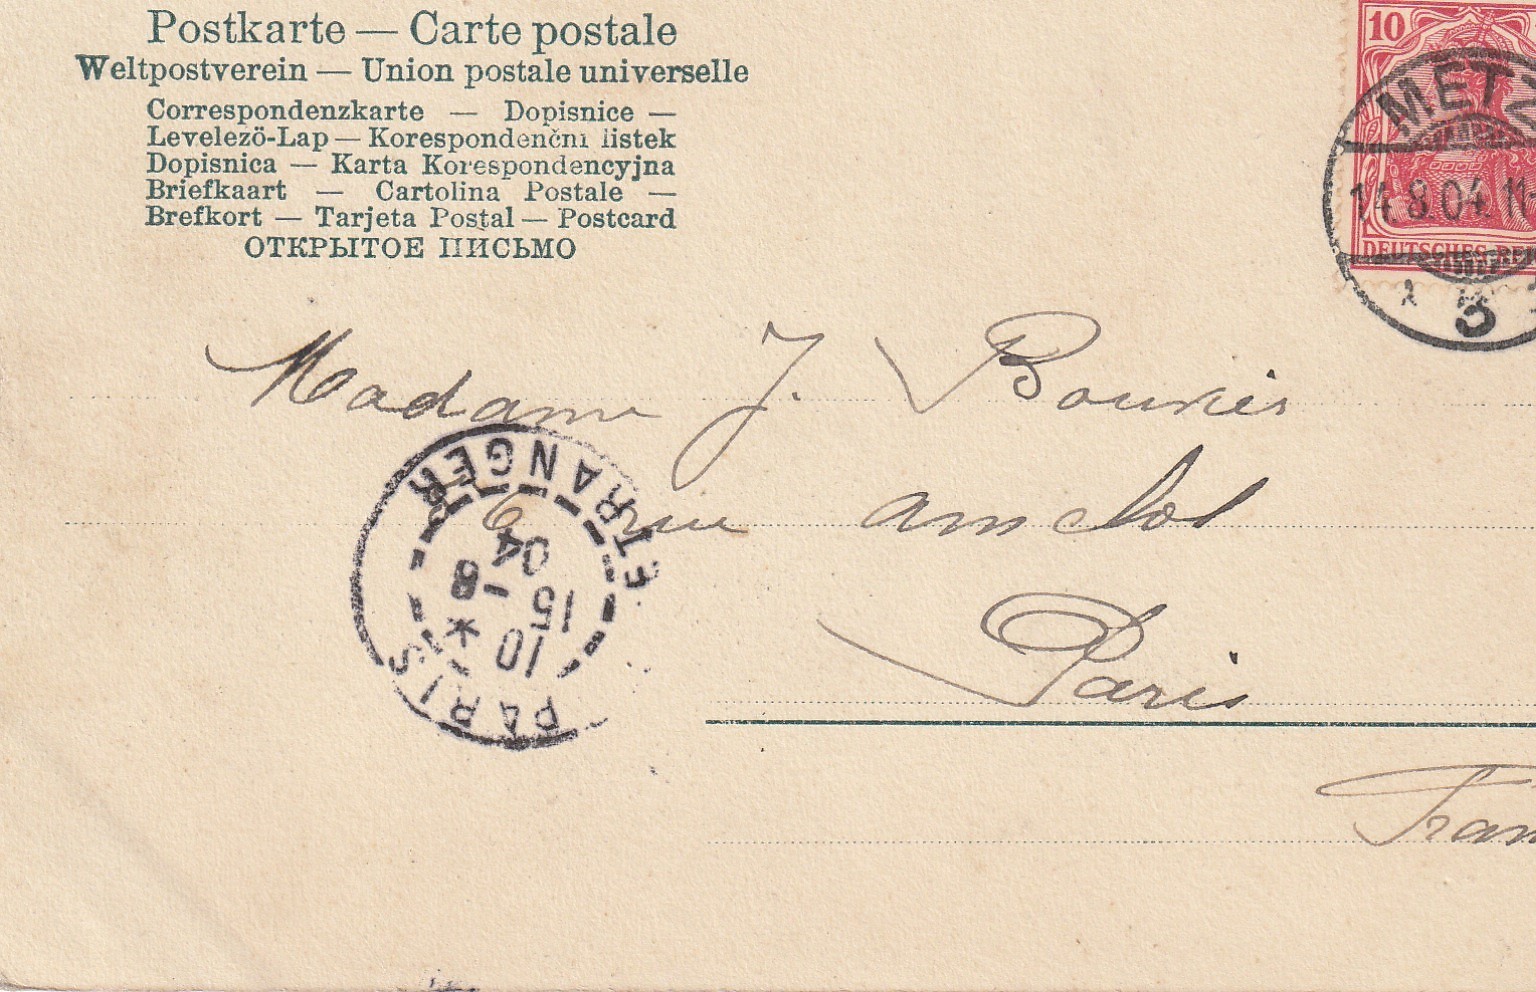 Postkarte — Carte postale
Weltpostverein — Union postale universelle
Correspondenzkarte — Dopisnice —
Levelezö-Lap — Korespondenčni listek
Dopisnica — Karta Korespondencyjna
Briefkaart — Cartolina Postale —
Brefkort — Tarjeta Postal — Postcard
ОТКРЫТОЕ ПИСЬМО
10
METZ
14.8.04.11-
DEUTSCHES REI
5
Madame J.
6 rue amelot
Paris
Fran
PARIS ETRANGER
10 *
15 -8
04